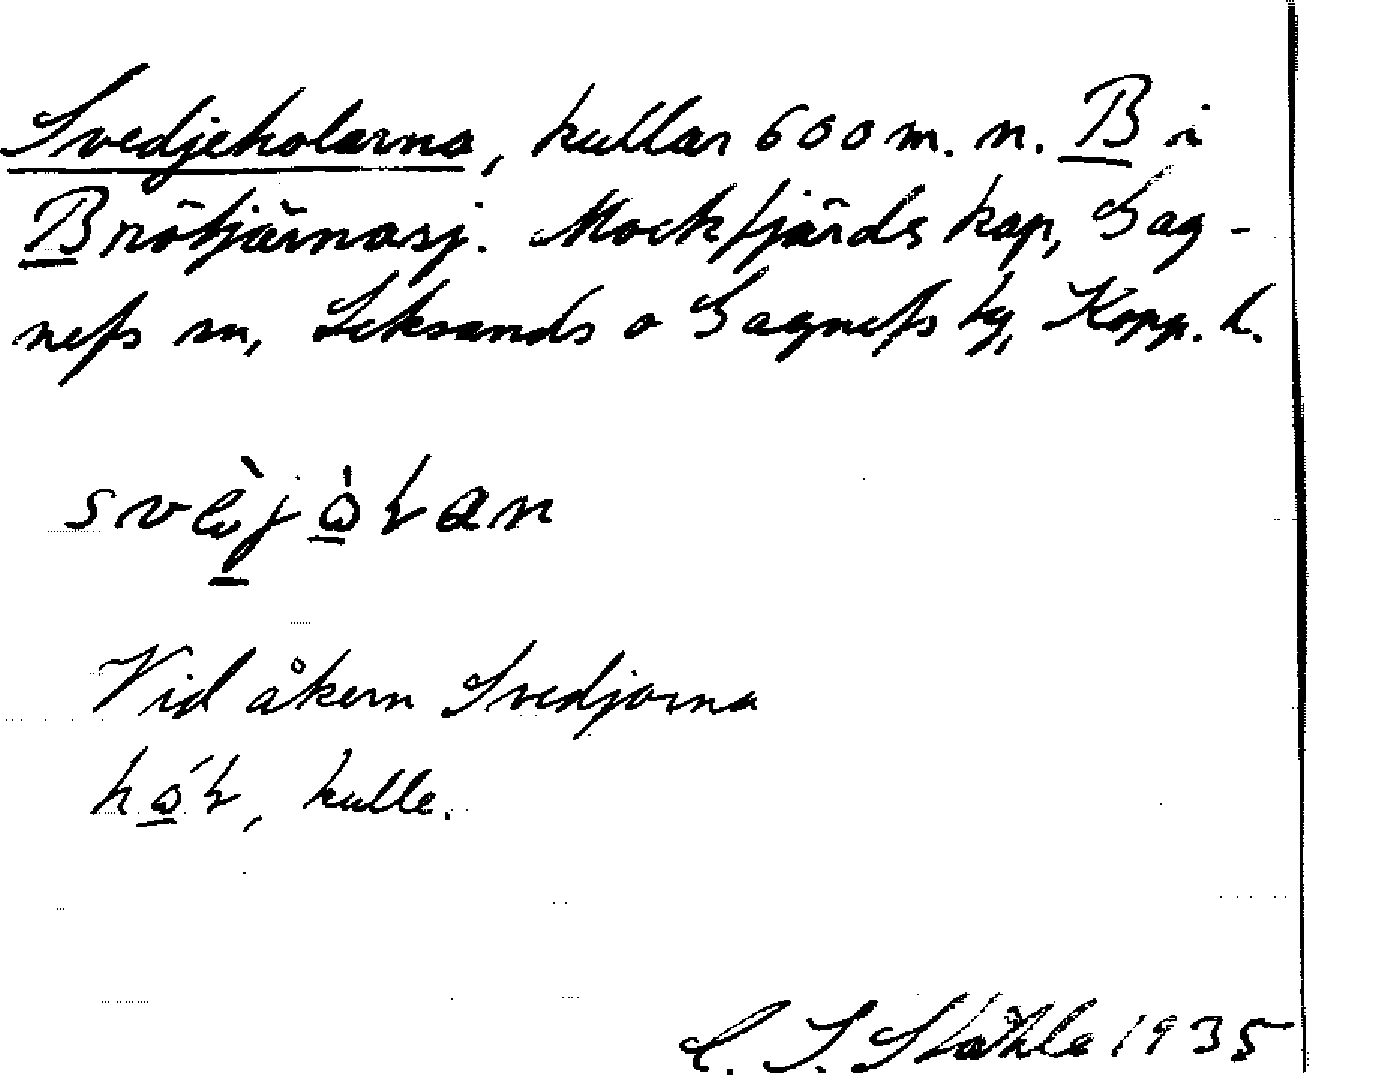 Svedjeholarna, kullar 600 m. n. B i
Brötjärnasj. Mockfjärds kap, Gag-
nefs sn, Leksands o Gagnefs tg, Kopp. l.
Vid åkern Svedjorna
kulle.
C. I. Ståhle 1935